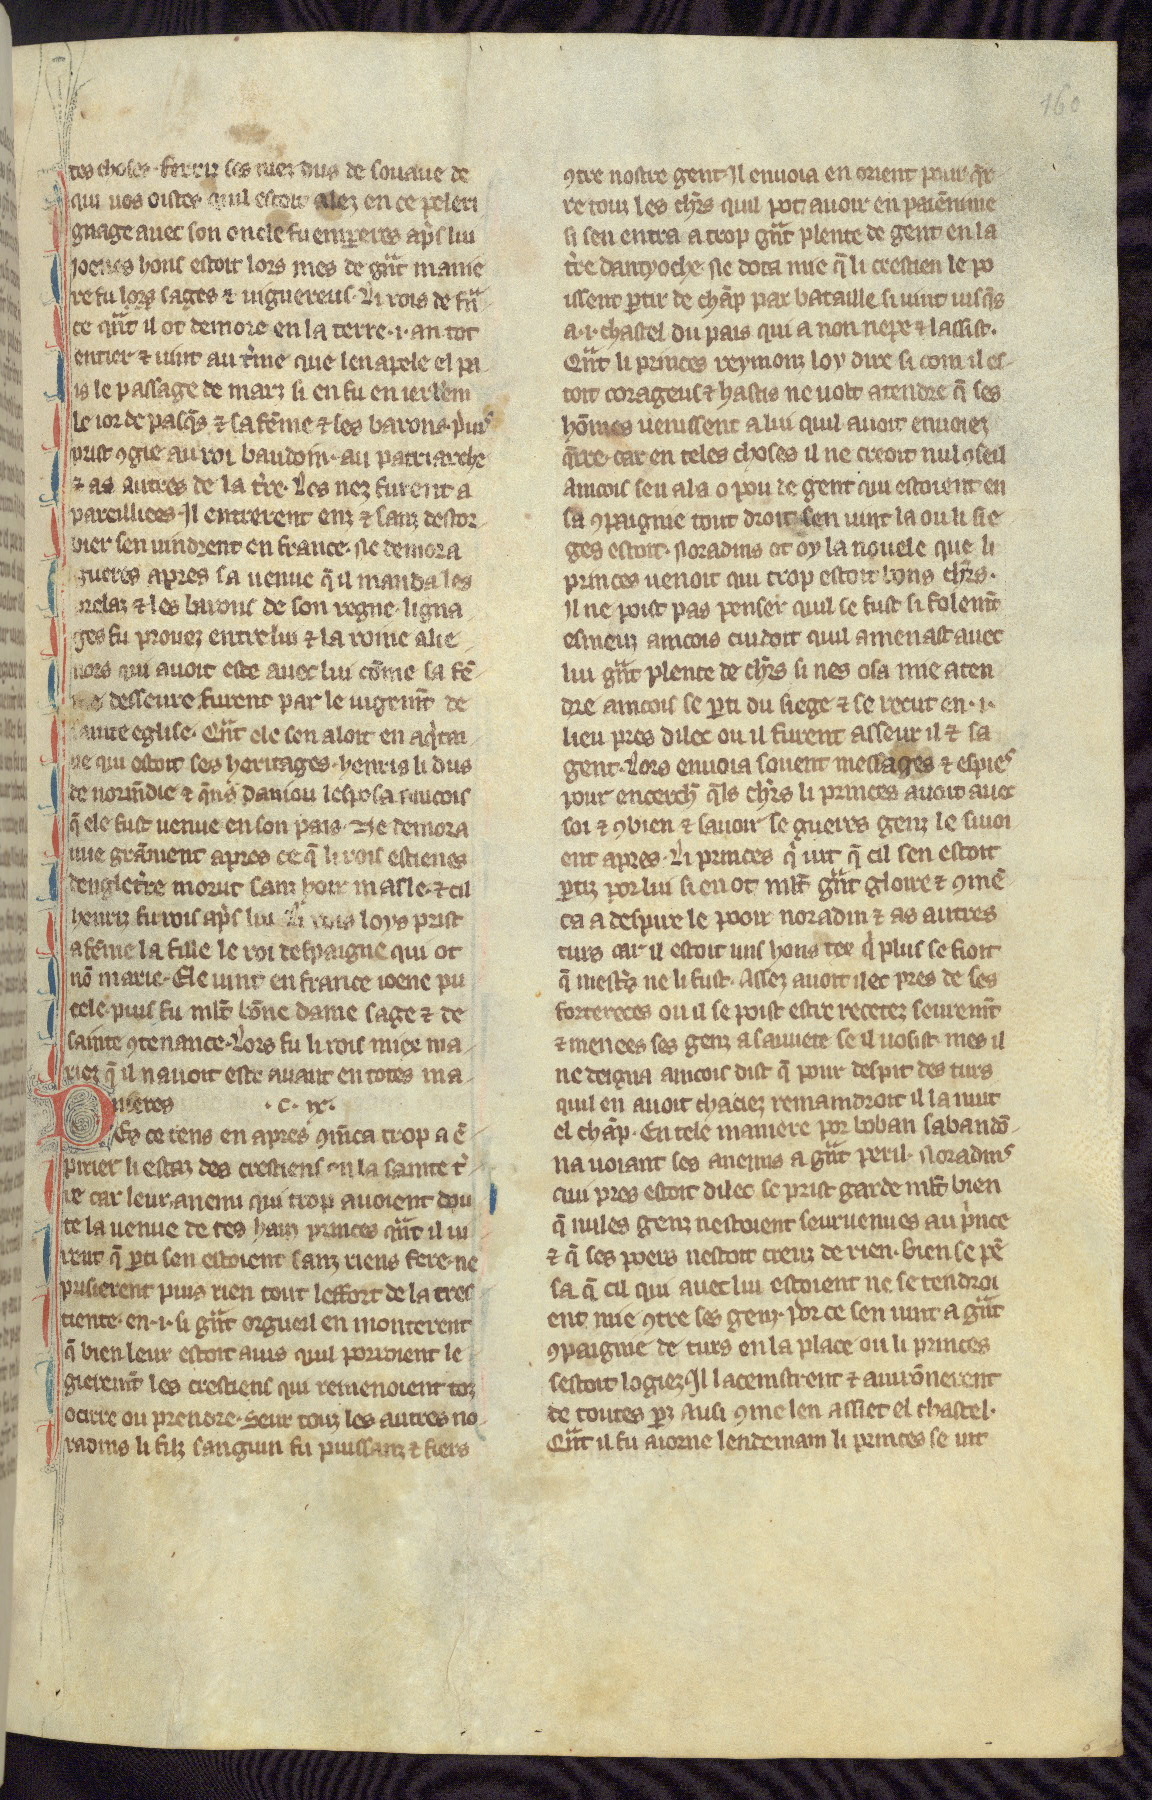 160
tes choses. ferriz ses niez dus de souaue de
qui uos oistes quil estoit alez en ce peleri
gnage auec son oncle fu emperes ap̃s lui
Joenes hons estoit lors mes de gñt manie
re fu lors sages ⁊ uiguereus. Li rois de frã
ce qñt il ot demore en la terre .i. an tot
entier ⁊ uint au t̃me que len apele el pa
is le passage de marz si en fu en ierl̃em
le ior de pasq̃s ⁊ sa fẽme ⁊ ses barons. puis
prist ꝯgie au roi baudoin. au patriarche
⁊ as autres de la t̃re. Les nez furent a
pareilliees. Il entrerent enz ⁊ sanz destor
bier sen uindrent en france. ne demora
gueres apres sa uenue q̃ il manda les
prelaz ⁊ les barons de son regne. ligna
ges fu prouez entre lui ⁊ la roine alie
nors qui auoit este auec lui cõme sa fẽ
me desseure furent par le iugem̃t de
sainte eglise. Qñt ele sen aloit en aq̃tai
ne qui estoit ses heritages. henris li dus
de normãdie ⁊ q̃ns daniou lesposa aincois
q̃ ele fust uenue en son pais. Ne demora
mie grãment apres ce q̃ li rois estienes
denglet̃re morut sanz hoir masle. ⁊ cil
henriz fu rois ap̃s lui. Li rois loys prist
a fẽme la fille le roi despaigne qui ot
nõ marie. Ele uint en france ioene pu
cele. puis fu ml̃t bõne dame sage ⁊ de
sainte ꝯtenance. Lors fu li rois miex ma
riez q̃ il nauoit este auant en totes ma
nieres .c. ix.
En ce tens en apres ꝯmẽca trop a ẽ
pirier li estaz des crestiens en la sainte t̃
re car leur anemi qui trop auoient dou
te la uenue de ces hauz princes qñt il ui
rent q̃ parti sen estoient sanz riens fere. ne
pusierent puis rien tout leffort de la cres
tiente. en .i. si gñt orgueil en monterent
q̃ bien leur estoit auis quil porroient le
gierem̃t les crestiens qui remenoient toz
ocirre ou prendre. Seur touz les autres no
radins li filz sanguin fu puissanz ⁊ fiers
ꝯtre nostre gent. Il enuoia en orient pour q̃r
re touz les chr̃s quil pot auoir en paiẽnime
si sen entra a trop gñt plente de gent en la
t̃re dantyoche. ne dota mie q̃ li crestien le po
issent partir de chãp par bataille si uint iusq̃s
a .i. chastel du pais qui a non nepe ⁊ lassist.
Qñt li princes reymonz loy dire si com il es
toit corageus ⁊ hastis ne uolt atendre q̃ ses
hõmes uenissent a lui quil auoit enuoiez
q̃rre. car en teles choses il ne creoit nul ꝯseil
Aincois sen ala o pou de gent qui estoient en
sa ꝯpaignie tout droit sen uint la ou li sie
ges estoit. Noradins ot oy la nouele que li
princes uenoit qui trop estoit bons chr̃s.
Il ne poist pas penser quil se fust si folem̃t
esmeuz aincois cuidoit quil amenast auec
lui gñt plente de chr̃s si nes osa mie aten
dre aincois se parti du siege ⁊ se recut en .i.
lieu pres dilec ou il furent asseur il ⁊ sa
gent. Lors enuoia souent messages ⁊ espies
pour encerch̃ q̃ls chr̃s li princes auoit auec
soi ⁊ ꝯbien ⁊ sauoir se gueres genz le siuoi
ent apres. Li princes q̃ uit q̃ cil sen estoit
partiz por lui si en ot ml̃t gñt gloire ⁊ ꝯmẽ
ca a despire le pooir noradin ⁊ as autres
turs car il estoit uns hons tex q̃ plus se fioit
q̃ mest̃s ne li fust. Assez auoit ilec pres de ses
forteresces ou il se poist estre recetez seurem̃t
⁊ menees ses genz a sauuete se il uosist. mes il
ne deigna aincois dist q̃ pour despit des turs
quil en auoit chaciez remaindroit il la nuit
el chãp. En tele maniere por boban sabandõ
na uoiant ses anemis a gñt peril. Noradins
qui pres estoit dilec se prist garde ml̃t bien
q̃ nules genz nestoient seuruenues au p̃nce
⁊ q̃ ses poeirs nestoit creuz de rien. Bien se pẽ
sa q̃ cil qui auec lui estoient ne se tendroi
ent mie ꝯtre ses genz. Por ce sen uint a gñt
ꝯpaignie de turs en la place ou li princes
sestoit logiez. Il lacemstrent ⁊ auirõnerent
de toutes parz ausi ꝯme len assiet el chastel.
Qñt il fu aiorne lendemain li princes se uit